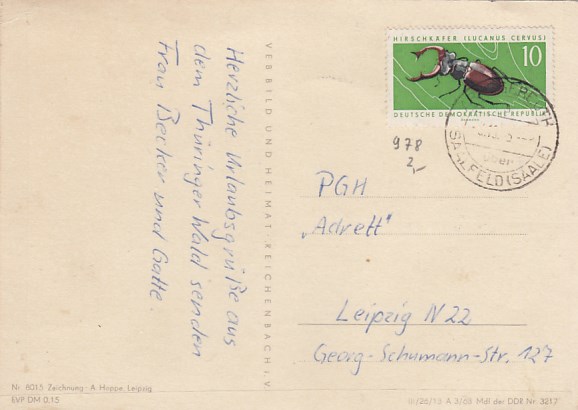 HIRSCHKÄFER (LUCANUS CERVUS)
10
DEUTSCHE DEMOKRATISCHE REPUBLIK
über
SAALFELD (SAALE)
978
2,-
PGH
„Adrett"
Leipzig N 22
Georg-Schumann-Str. 127
Herzliche Urlaubsgrüße aus
dem Thüringer Wald senden
Frau Becker und Gatte.
VEB BILD UND HEIMAT · REICHENBACH i. V.
Nr. 6015 Zeichnung - A. Hoppe, Leipzig
EVP DM 0,15
III/26/13 A 3/63 MdI der DDR Nr. 3217